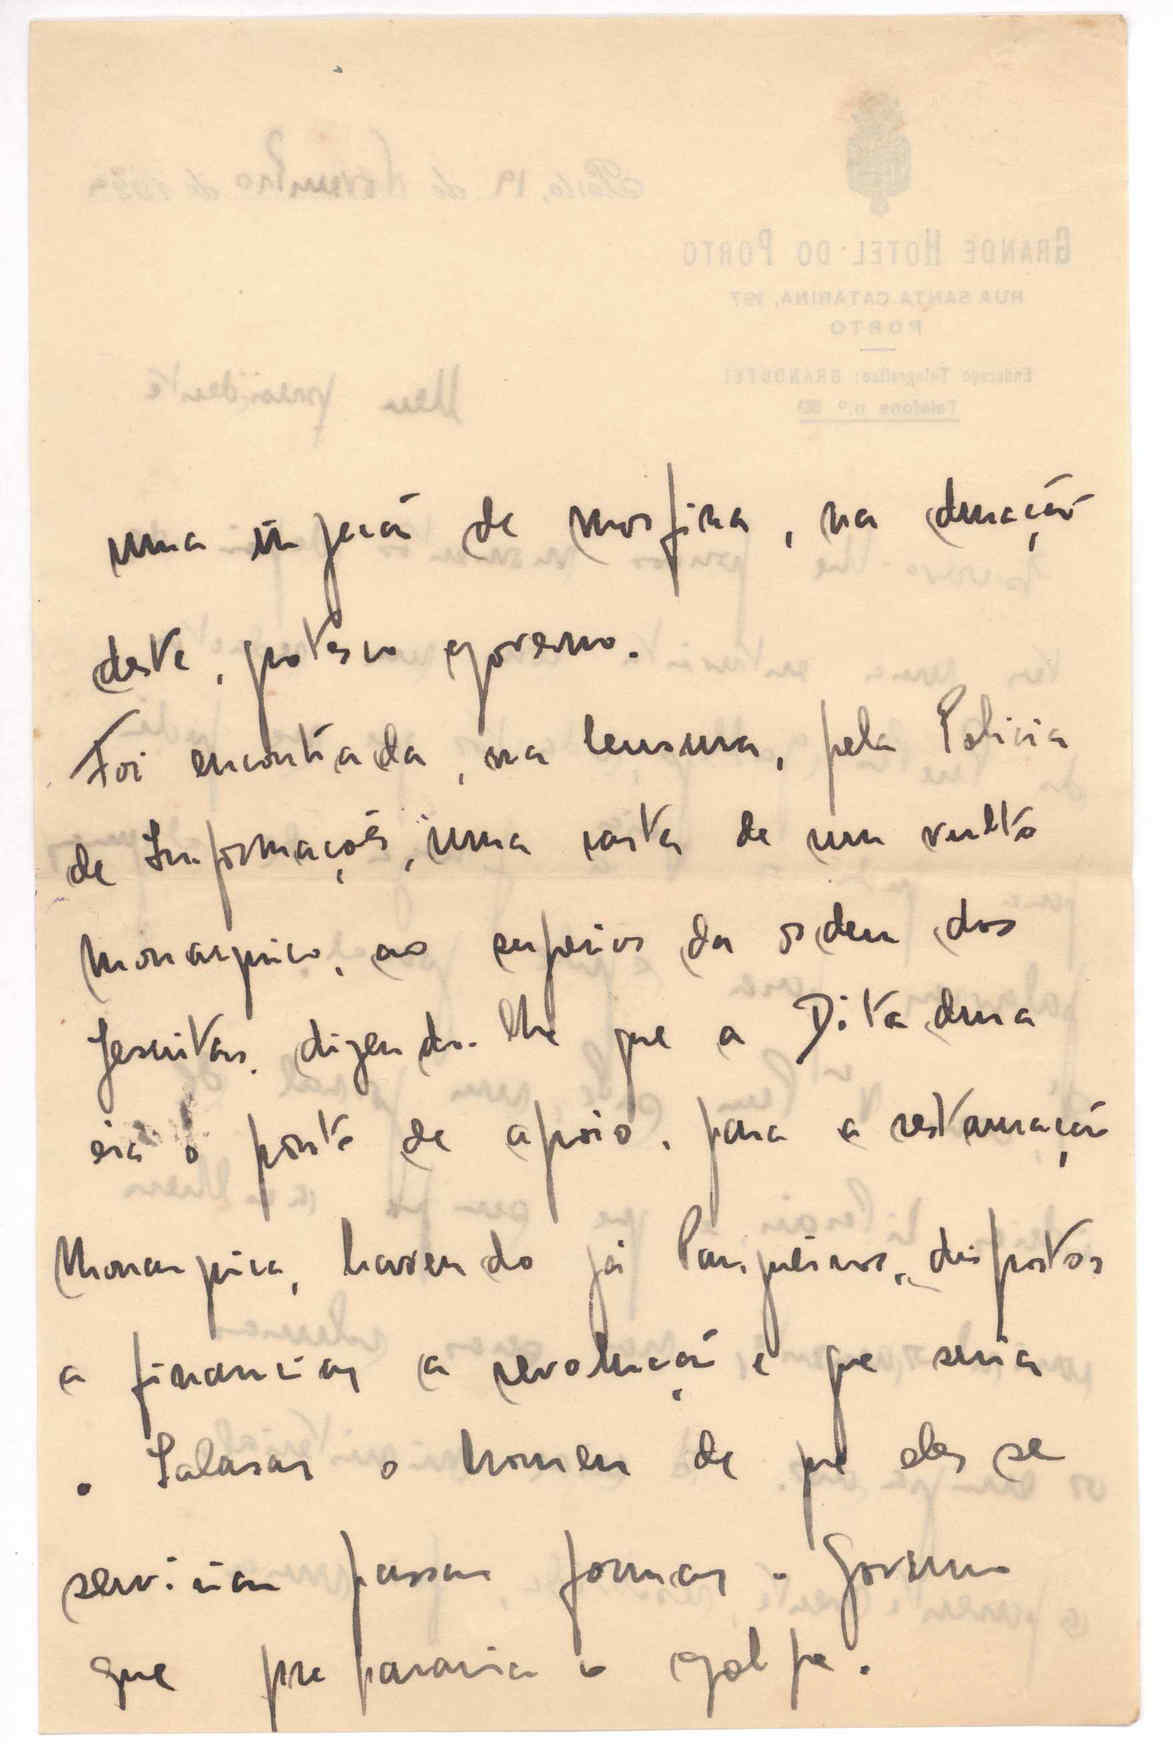 uma injecção de morfina, na duração
deste, grotesco governo.
Foi encontrada, na censura, pela Policia
de Informações, uma carta de um vulto
monarquico, ao superior da ordem dos
Jesuitas, dizendo-lhe que a Ditadura
era o ponto de apoio, para a restauração
Monarquica, havendo já banqueiros, dispostos
a financiar a revolução e que seria
o Salazar o homem de que eles se
serviriam para formar o Governo
que prepararia o golpe.
GRANDE HOTEL DO PORTO
RUA SANTA CATARINA, 197
PORTO
Meu presidente